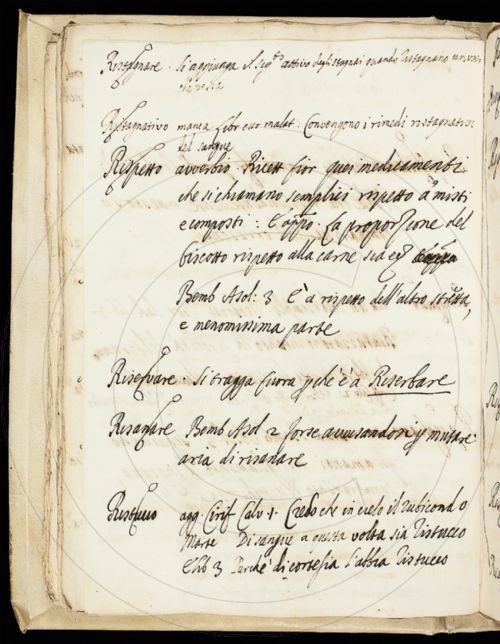 Ristagnare. Si aggiunga il sig.to attivo degli stagnai quando ristagnano un vaso
che versa
Ristagnativo manca libr cur malat: Convengono i rimedi ristagnativi
del sangue
Rispetto avverbio Ricett fior quei medicamenti
che si chiamano semplici rispetto a' misti
e composti: E app.o La proporzione del
biscotto rispetto alla carne sia
Bemb Asol: 3 È a rispetto dell'altro stretta,
e menomissima parte
Riserbare. Si tragga fuora p.chè è a Reserbare
Risanare Bemb Asol 2 forse avvisandosi p mutare
aria di risanare
Ristucco agg. Cirif Calv 1. Credo che in cielo il rubicondo
Marte Di sangue a questa volta sia ristucco
E lib 3 Perchè di cortesia s'abbia ristucco